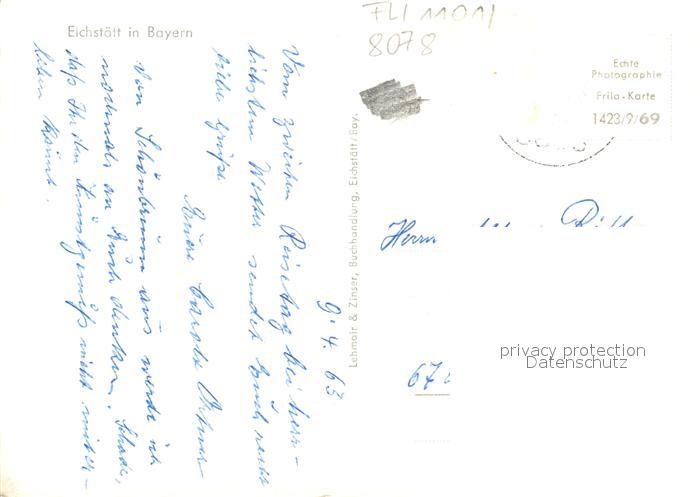 Eichstätt in Bayern
FLI 11011
8078
Echte
Photographie
Frila-Karte
1423/9/69
9.4.63
Vom zweiten Reisetag bei herr-
lichstem Wetter sendet Euch recht
liebe Grüße
Eure Carola
Von Schönbrunn aus werde ich
nochmals an Euch denken. Schade,
daß Ihr den Kunstgenuß nicht miter-
leben könnt.
Lehmair & Zinser, Buchhandlung, Eichstätt/Bay.
Herrn
67
privacy protection
Datenschutz